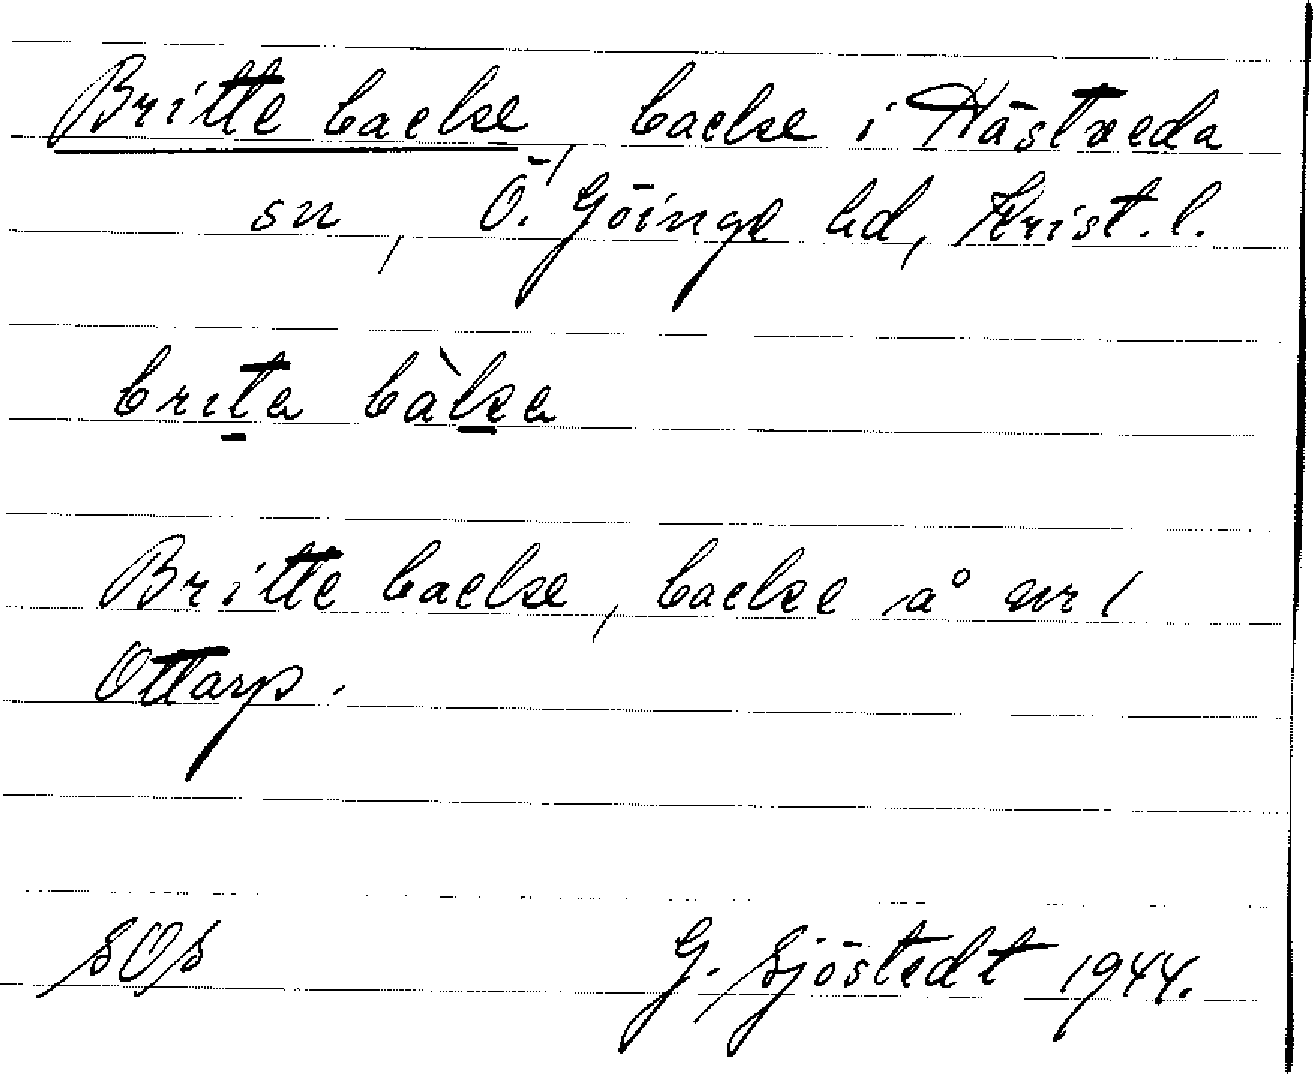 Britte backe, backe i Hästveda
sn, Ö. Göinge hd, Krist. l.
brita bàka
Britte backe, backe å nr 1
Ottarp.
SOS G. Sjöstedt 1944.